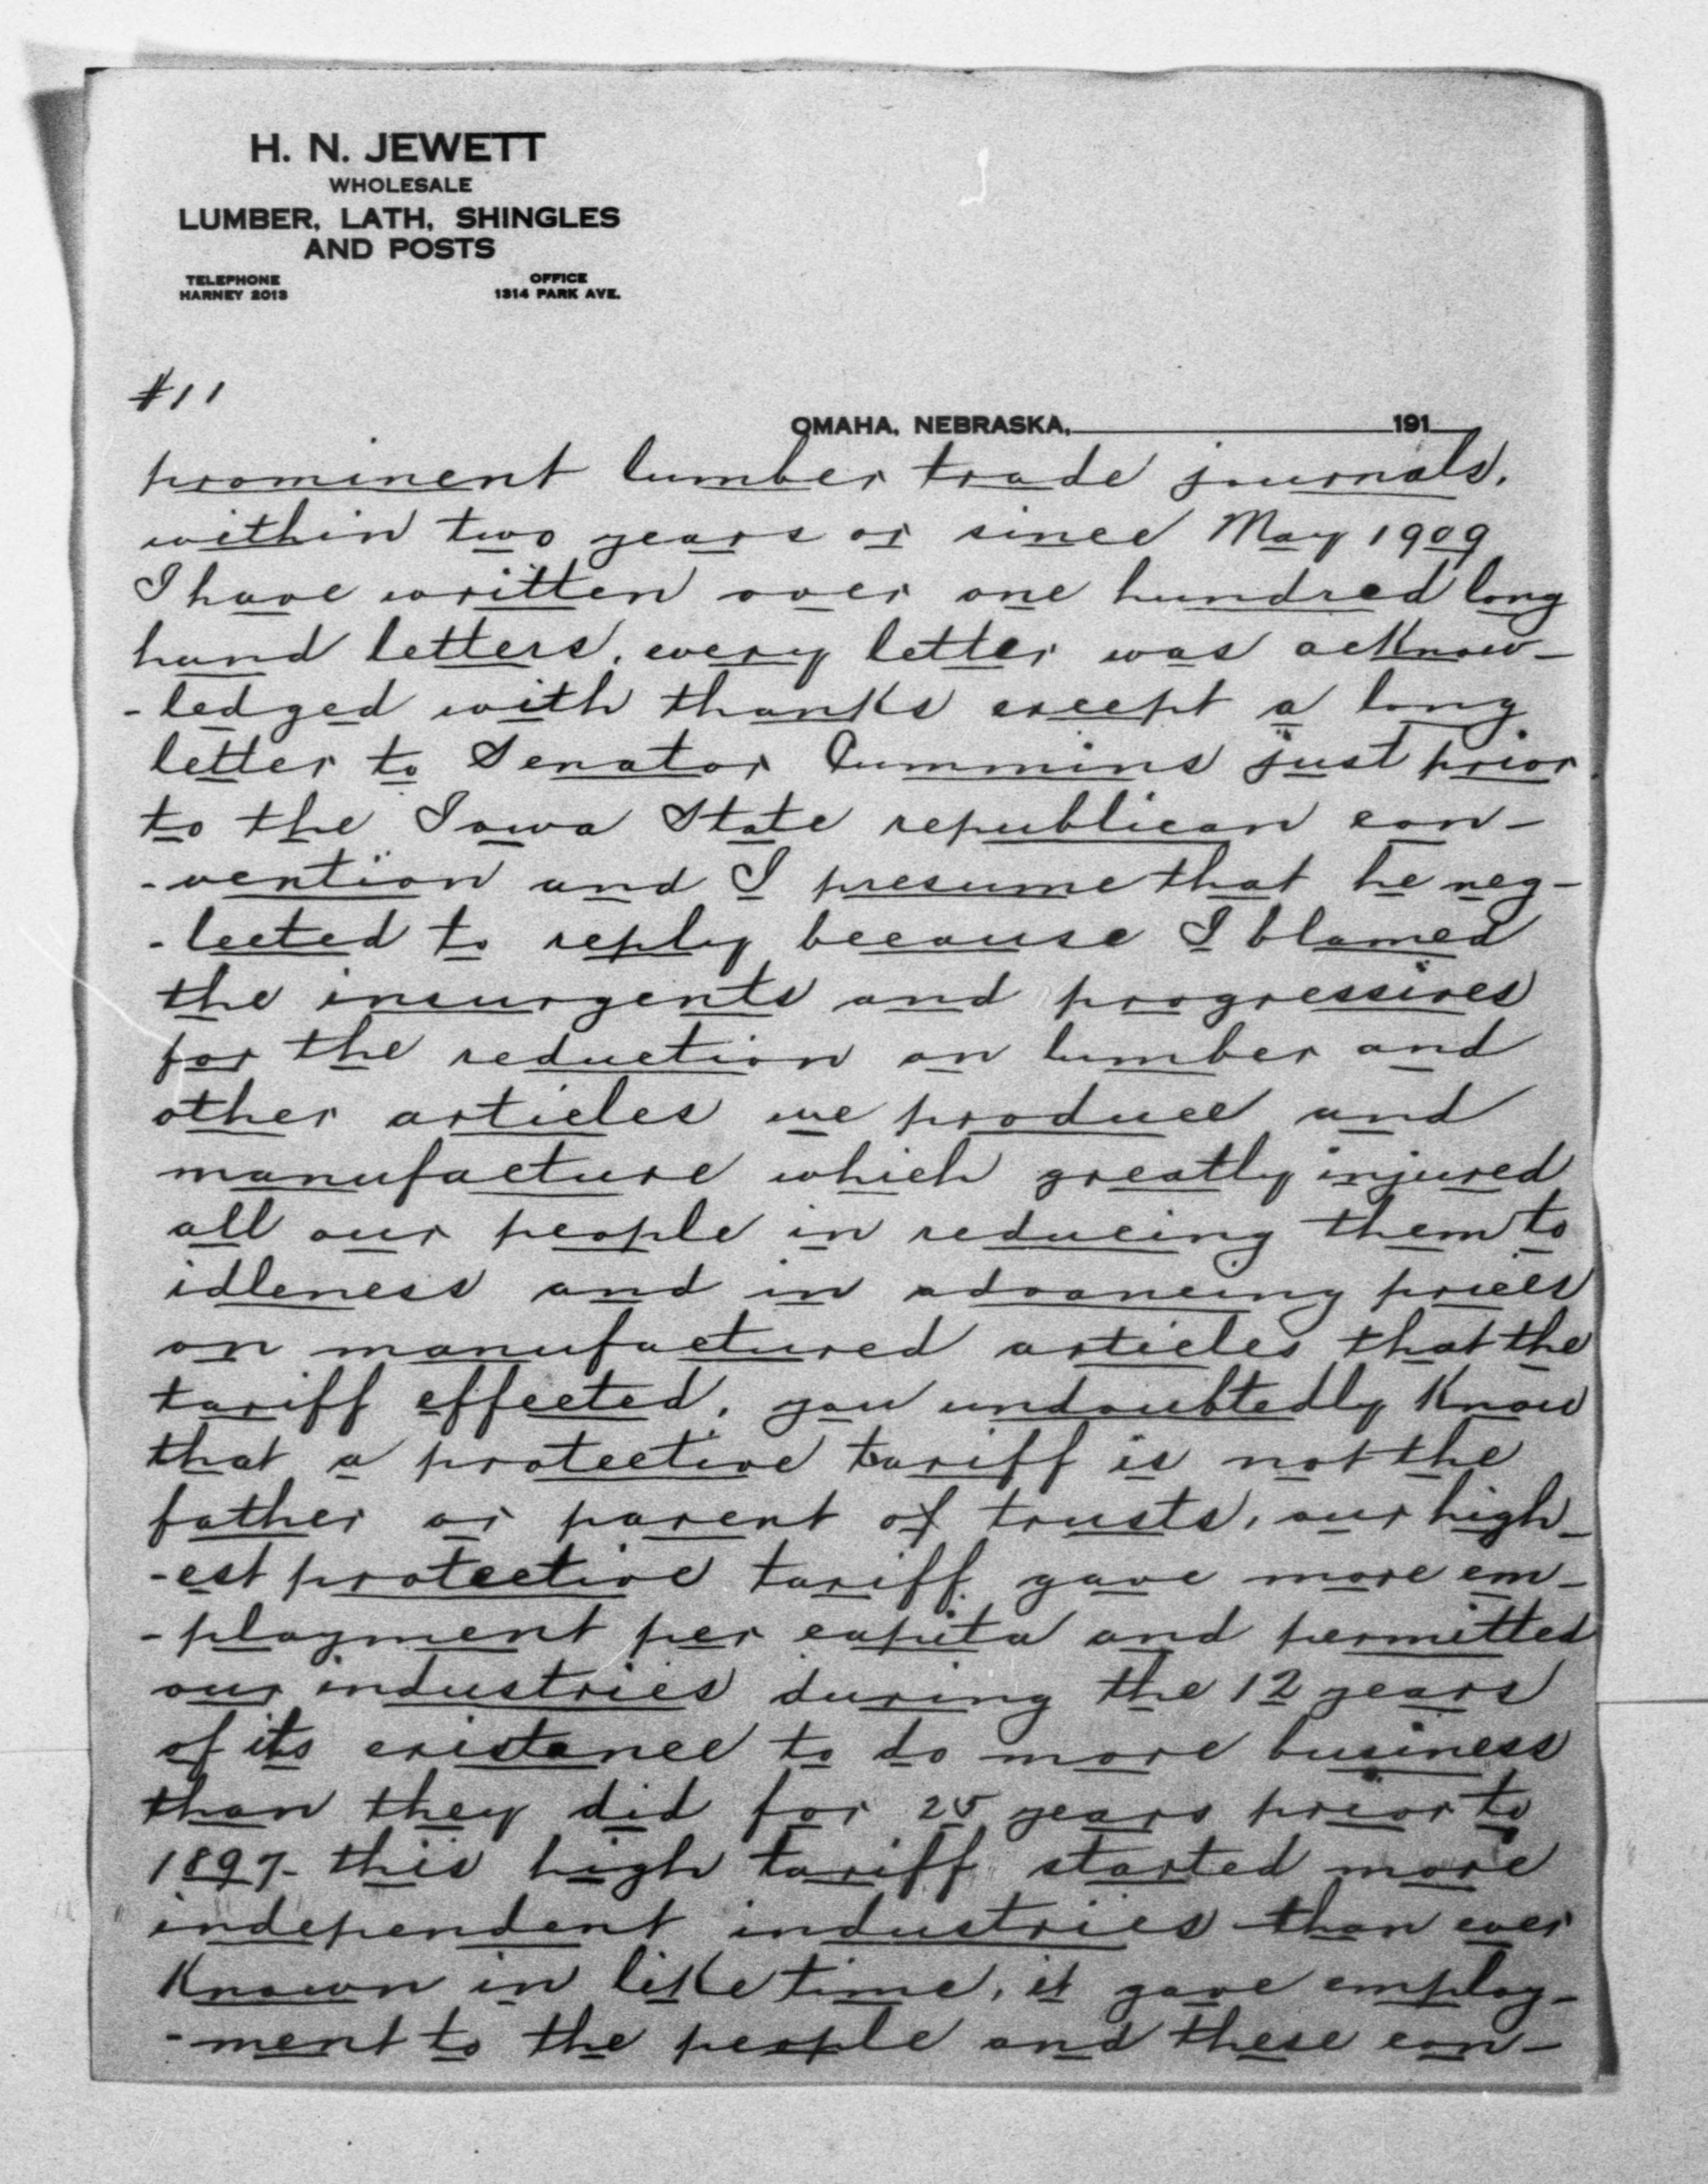 H. N. JEWETT
WHOLESALE
LUMBER, LATH, SHINGLES
AND POSTS
TELEPHONE
HARNEY 2013
OFFICE
1314 PARK AVE.
#11
OMAHA, NEBRASKA, 191
prominent lumber trade journals,
within two years or since May 1909
I have written over one hundred long
hand letters, every letter was acknow-
-ledged with thanks except a long
letter to Senator Cummins just prior
to the Iowa State republican con-
-vention and I presume that he neg-
-lected to reply because I blamed
the insurgents and progressives
for the reduction on lumber and
other articles we produce and
manufacture which greatly injured
all our people in reducing them to
idleness and in advancing prices
on manufactured articles that the
tariff effected, you undoubtedly know
that a protective tariff is not the
father or parent of trusts, our high-
-est protective tariff gave more em-
-ployment per capita and permitted
our industries during the 12 years
of its existance to do more business
than they did for 25 years prior to
1897- this high tariff started more
independent industries than ever
known in like time, it gave employ-
-ment to the people and these con-